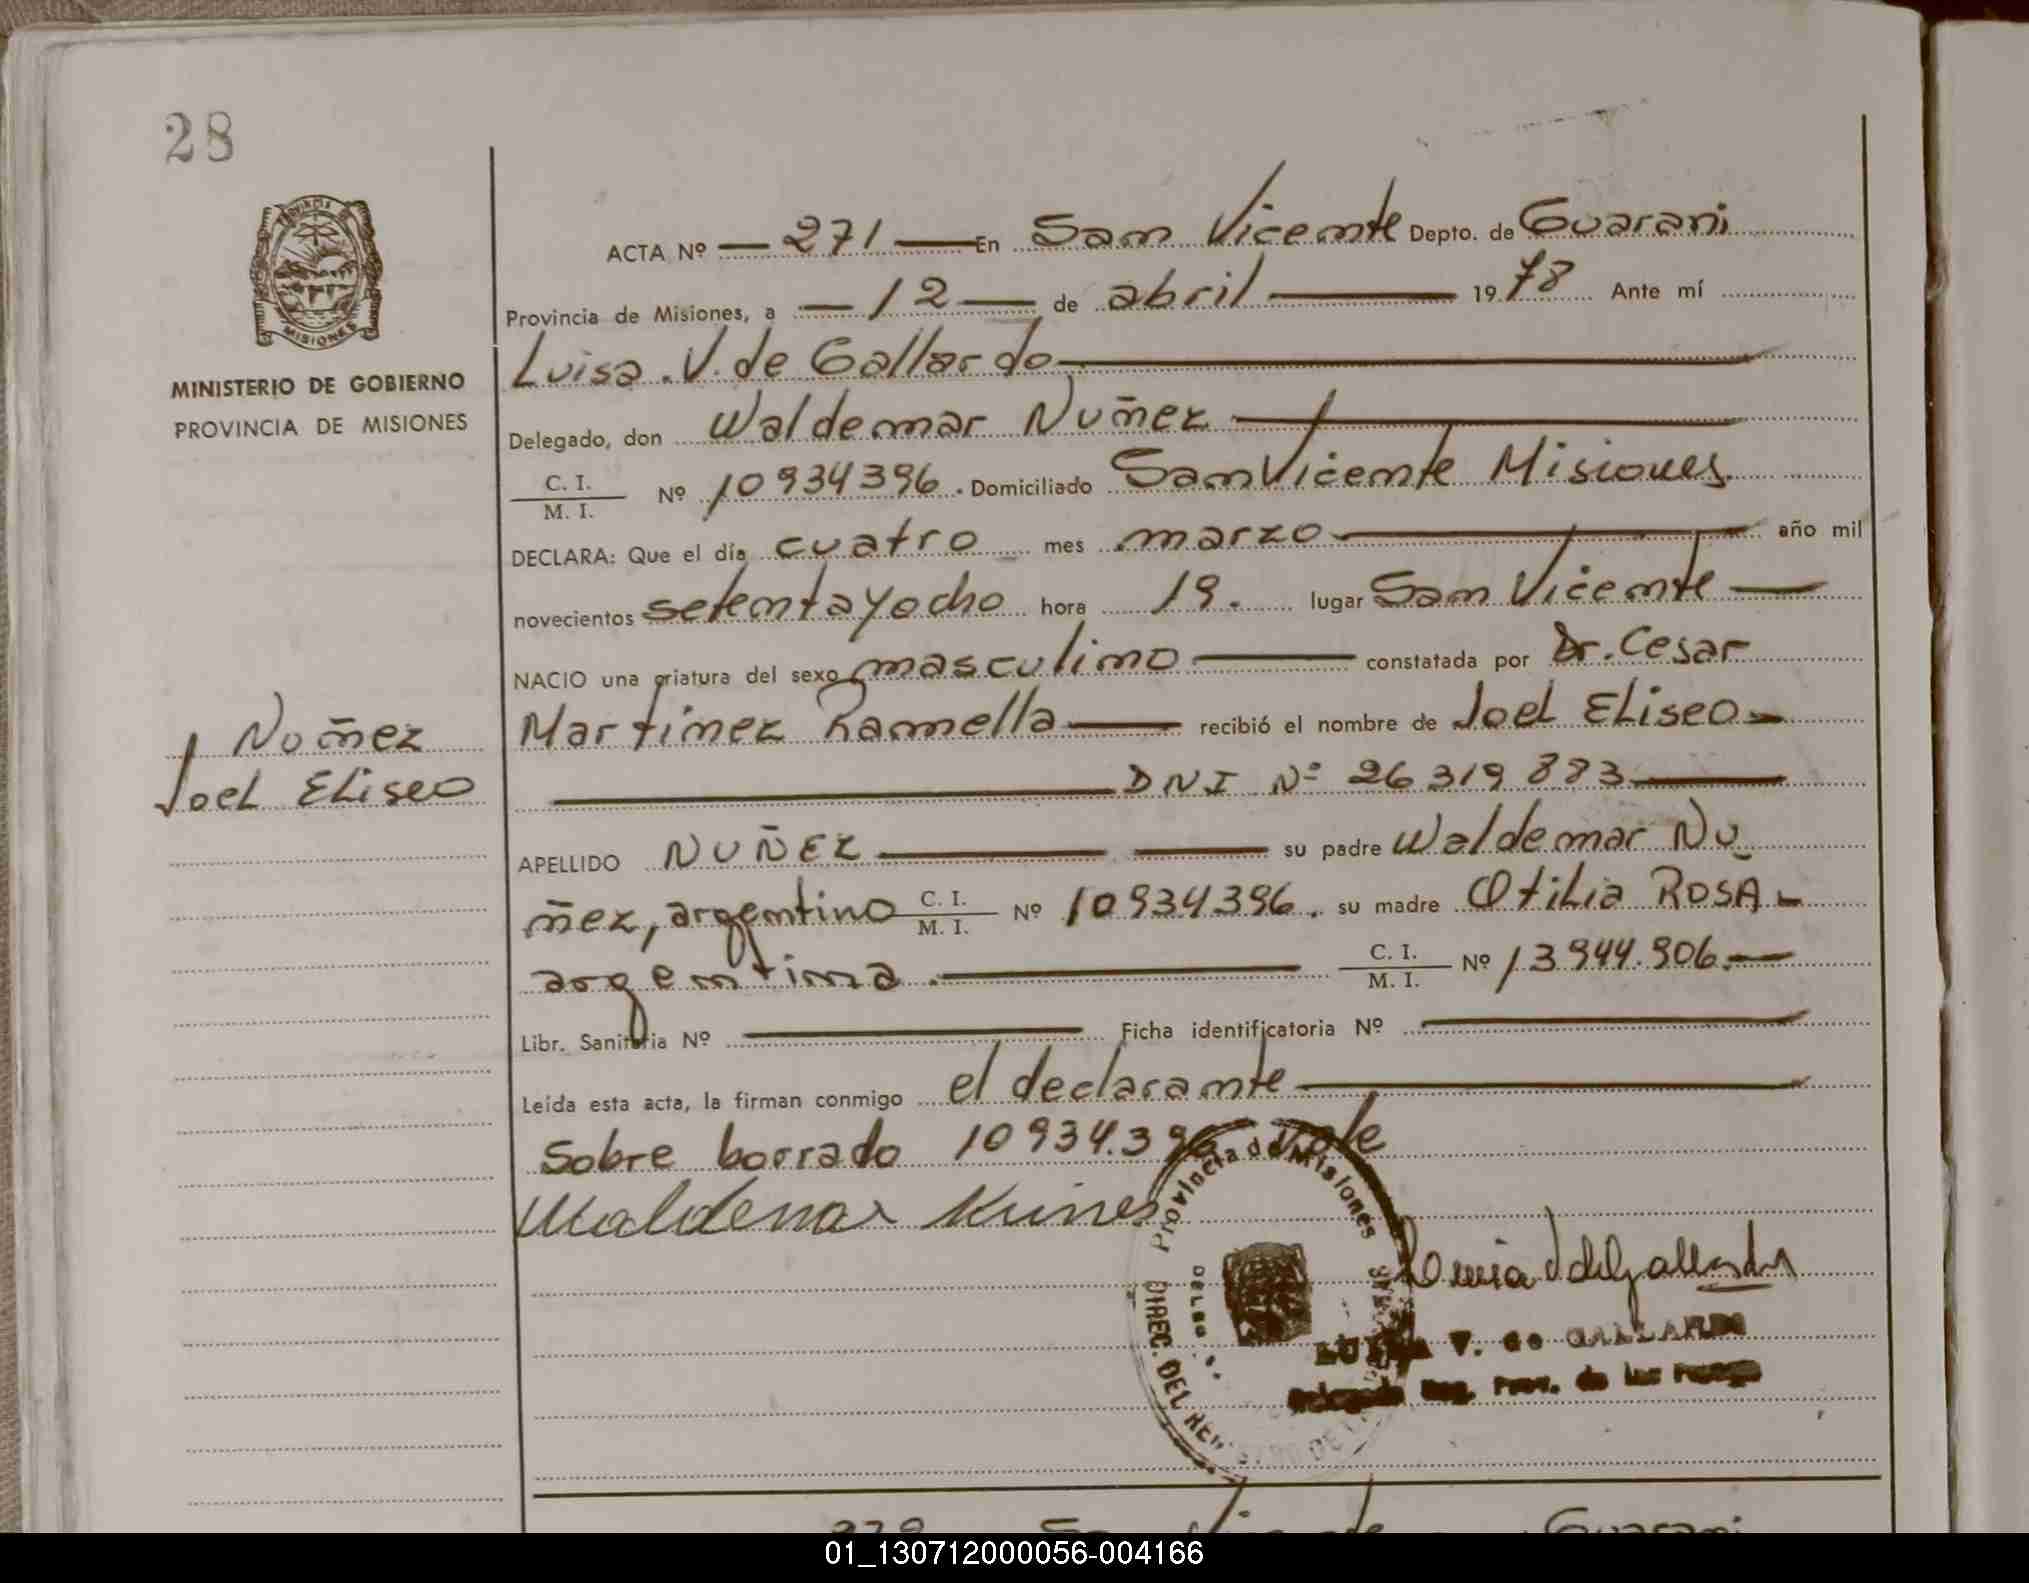 28
PROVINCIA DE
MISIONES
MINISTERIO DE GOBIERNO
PROVINCIA DE MISIONES
ACTA Nº 271 En San Vicente Depto. de Guarani
Provincia de Misiones, a 12 de abril 1978 Ante mí
Luisa. V. de Gallardo
Delegado, don Waldemar Nuñez
C. I. / M. I. Nº 10934396. Domiciliado San Vicente Misiones.
DECLARA: Que el día cuatro mes marzo año mil
novecientos setentayocho hora 19. lugar San Vicente
NACIO una criatura del sexo masculino constatada por Dr. Cesar
Martinez Ramella recibió el nombre de Joel Eliseo
DNI Nº 26319883
APELLIDO NUÑEZ su padre Waldemar Nu
ñez, argentino C. I. / M. I. Nº 10934396. su madre Otilia ROSA
argentina. C. I. / M. I. Nº 13944.906.
Libr. Sanitaria Nº Ficha identificatoria Nº
Leída esta acta, la firman conmigo el declarante
Sobre borrado 10934.396 vale
Nuñez
Joel Eliseo
Waldemar Nunes
Provincia de Misiones
DIREC. DEL
V. de GALLARDO
01_130712000056-004166